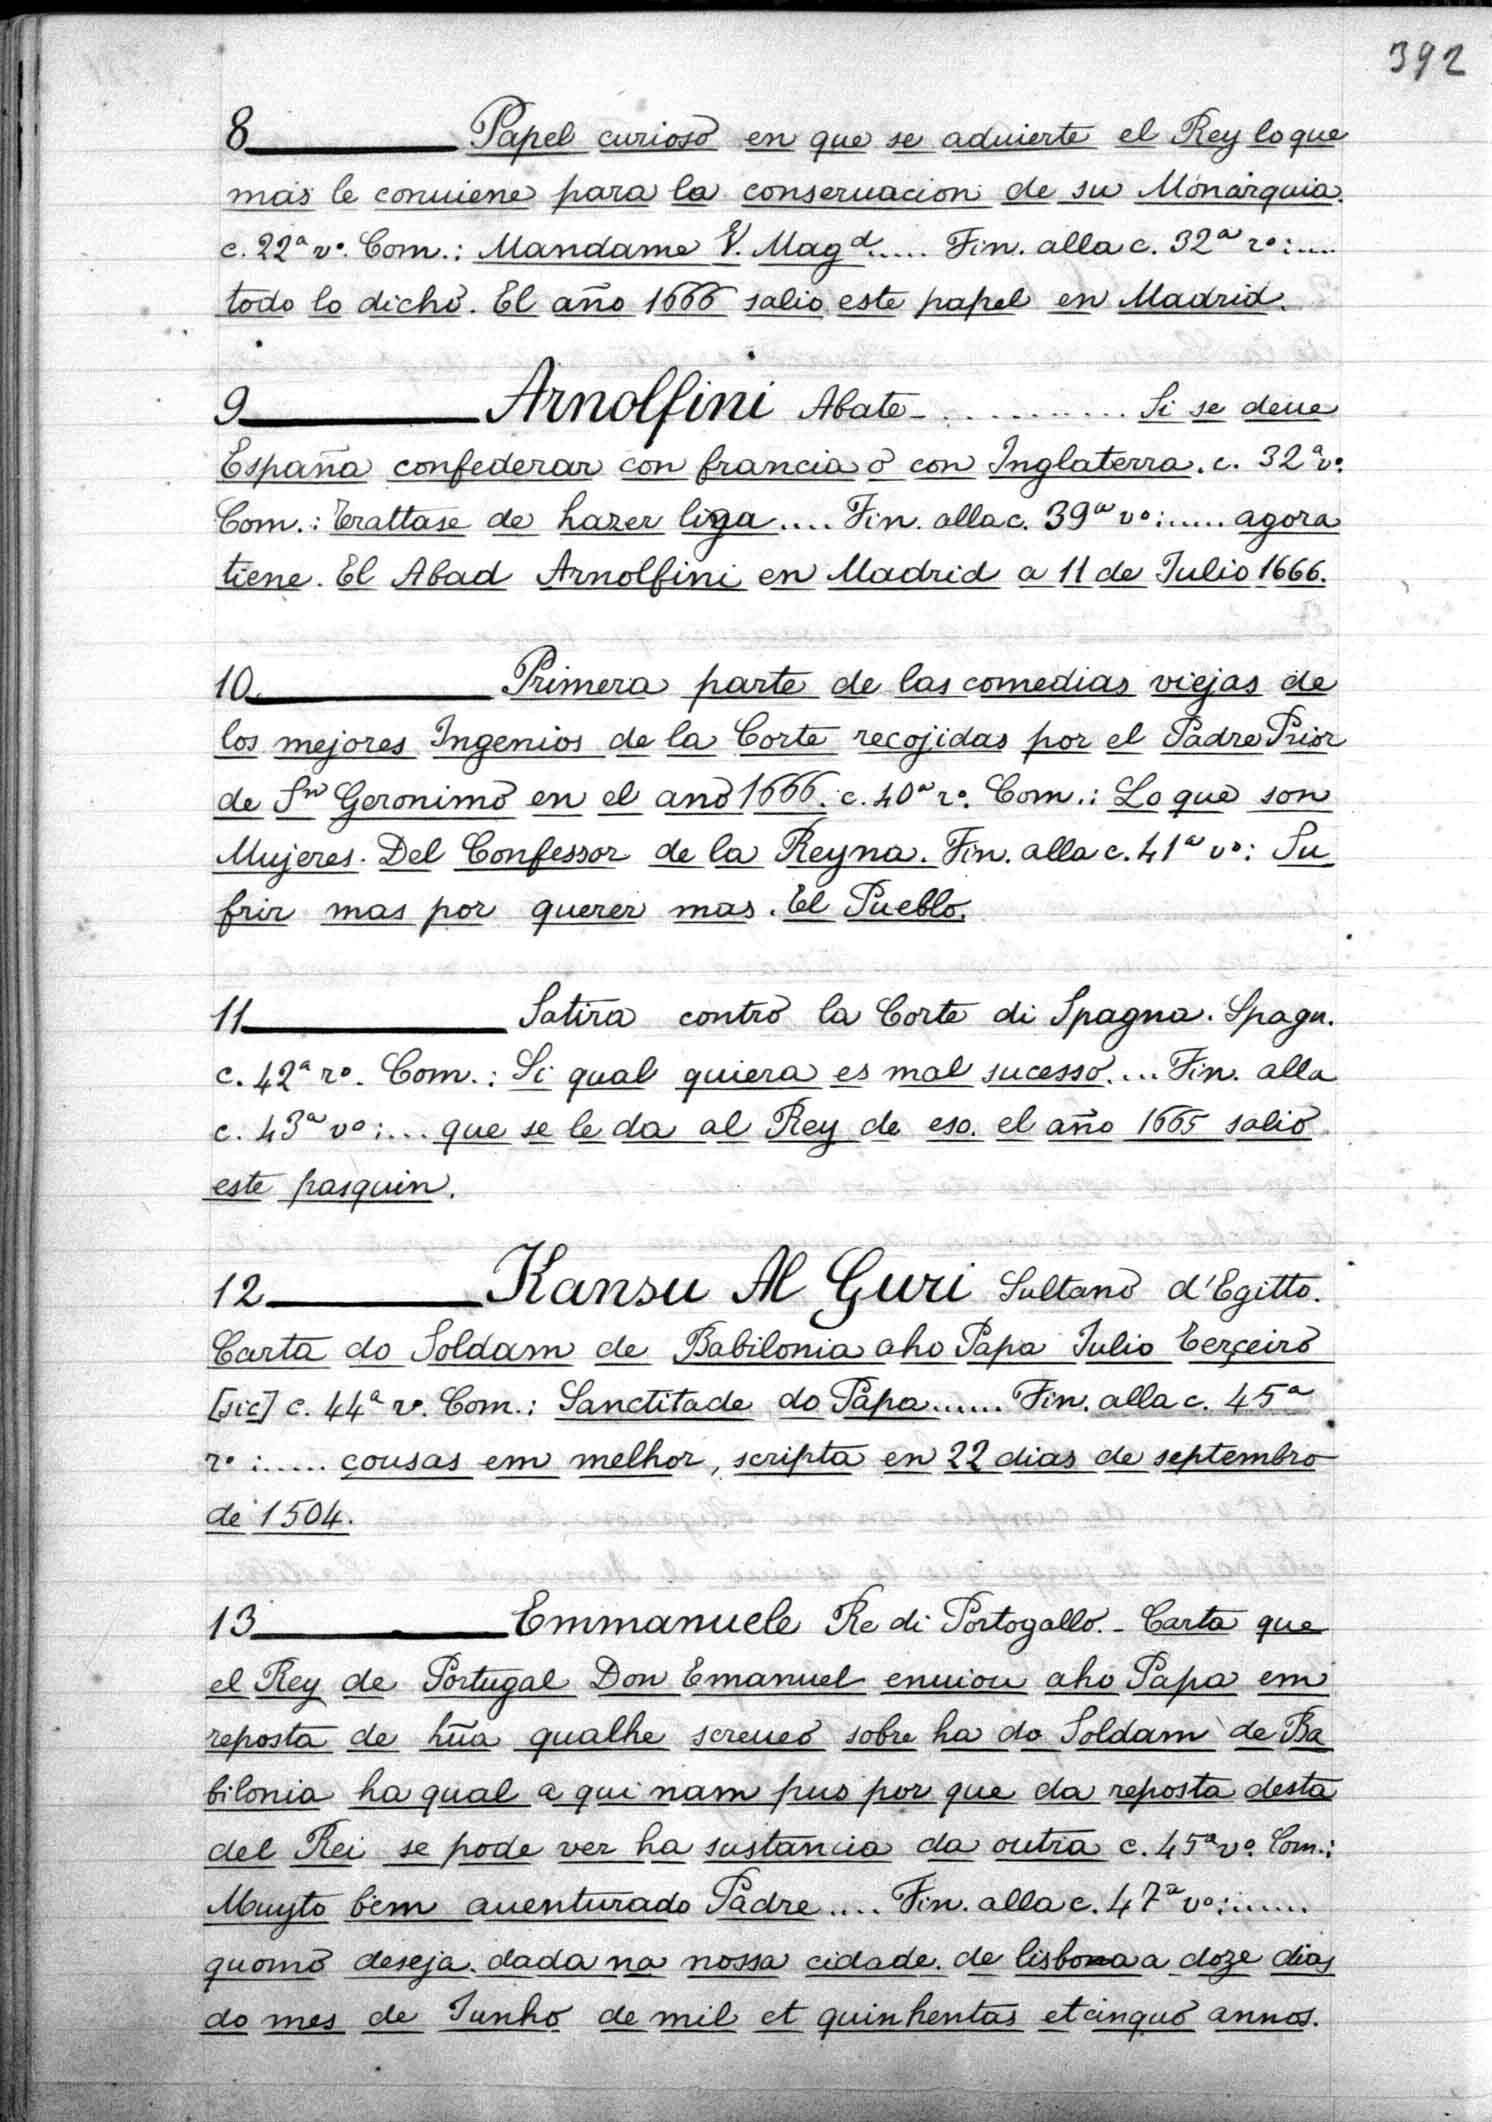 392
8 Papel curioso en que se aduierte el Rey lo que
mas le conuiene para la conseruacion de su Monarquia.
c. 22ª vº. Com.: Mandame V. Magᵈ..... Fin. alla c. 32ª rº:....
todo lo dicho. El año 1666 salio este papel en Madrid.
9 Arnolfini Abate - . . . . . . . . . . Si se deue
España confederar con francia o con Inglaterra. c. 32ª vº.
Com.: Trattase de hazer liga.... Fin. alla c. 39ª vº:..... agora
tiene. El Abad Arnolfini en Madrid a 11 de Julio 1666.
10 Primera parte de las comedias viejas de
los mejores Ingenios de la Corte recojidas por el Padre Prior
de Sⁿ Geronimo en el ano 1666. c. 40ª rº. Com.: Lo que son
Mujeres. Del Confessor de la Reyna. Fin. alla c. 41ª vº: Su
frir mas por querer mas. El Pueblo.
11 Satira contro la Corte di Spagna. Spagn.
c. 42ª rº. Com.: Si qual quiera es mal sucesso.... Fin. alla
c. 43ª vº:... que se le da al Rey de eso. el año 1665 salió
este pasquin.
12 Kansu Al Guri Sultano d'Egitto.
Carta do Soldam de Babilonia aho Papa Julio Terçeiro
[sic] c. 44ª rº. Com.: Sanctitade do Papa...... Fin. alla c. 45ª
rº:..... çousas em melhor, scripta en 22 dias de septembro
de 1504.
13 Emmanuele Re di Portogallo. - Carta que
el Rey de Portugal Don Emanuel enuiou aho Papa em
reposta de hũa qualhe screueo sobre ha do Soldam de Ba
bilonia ha qual a qui nam pus por que da reposta desta
del Rei se pode ver ha sustancia da outra c. 45ª vº. Com.:
Muyto bem auenturado Padre.... Fin. alla c. 47ª vº:.....
quomo deseja. dada na nossa cidade. de lisbona a doze dias
do mes de Junho de mil et quinhentas et cinquo annos.